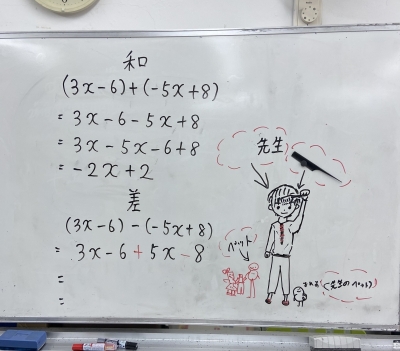 和
(3x-6)+(-5x+8)
= 3x-6-5x+8
= 3x-5x-6+8
= -2x+2
差
(3x-6)-(-5x+8)
= 3x-6+5x-8
=
=
先生
ペット
(先生のペット)